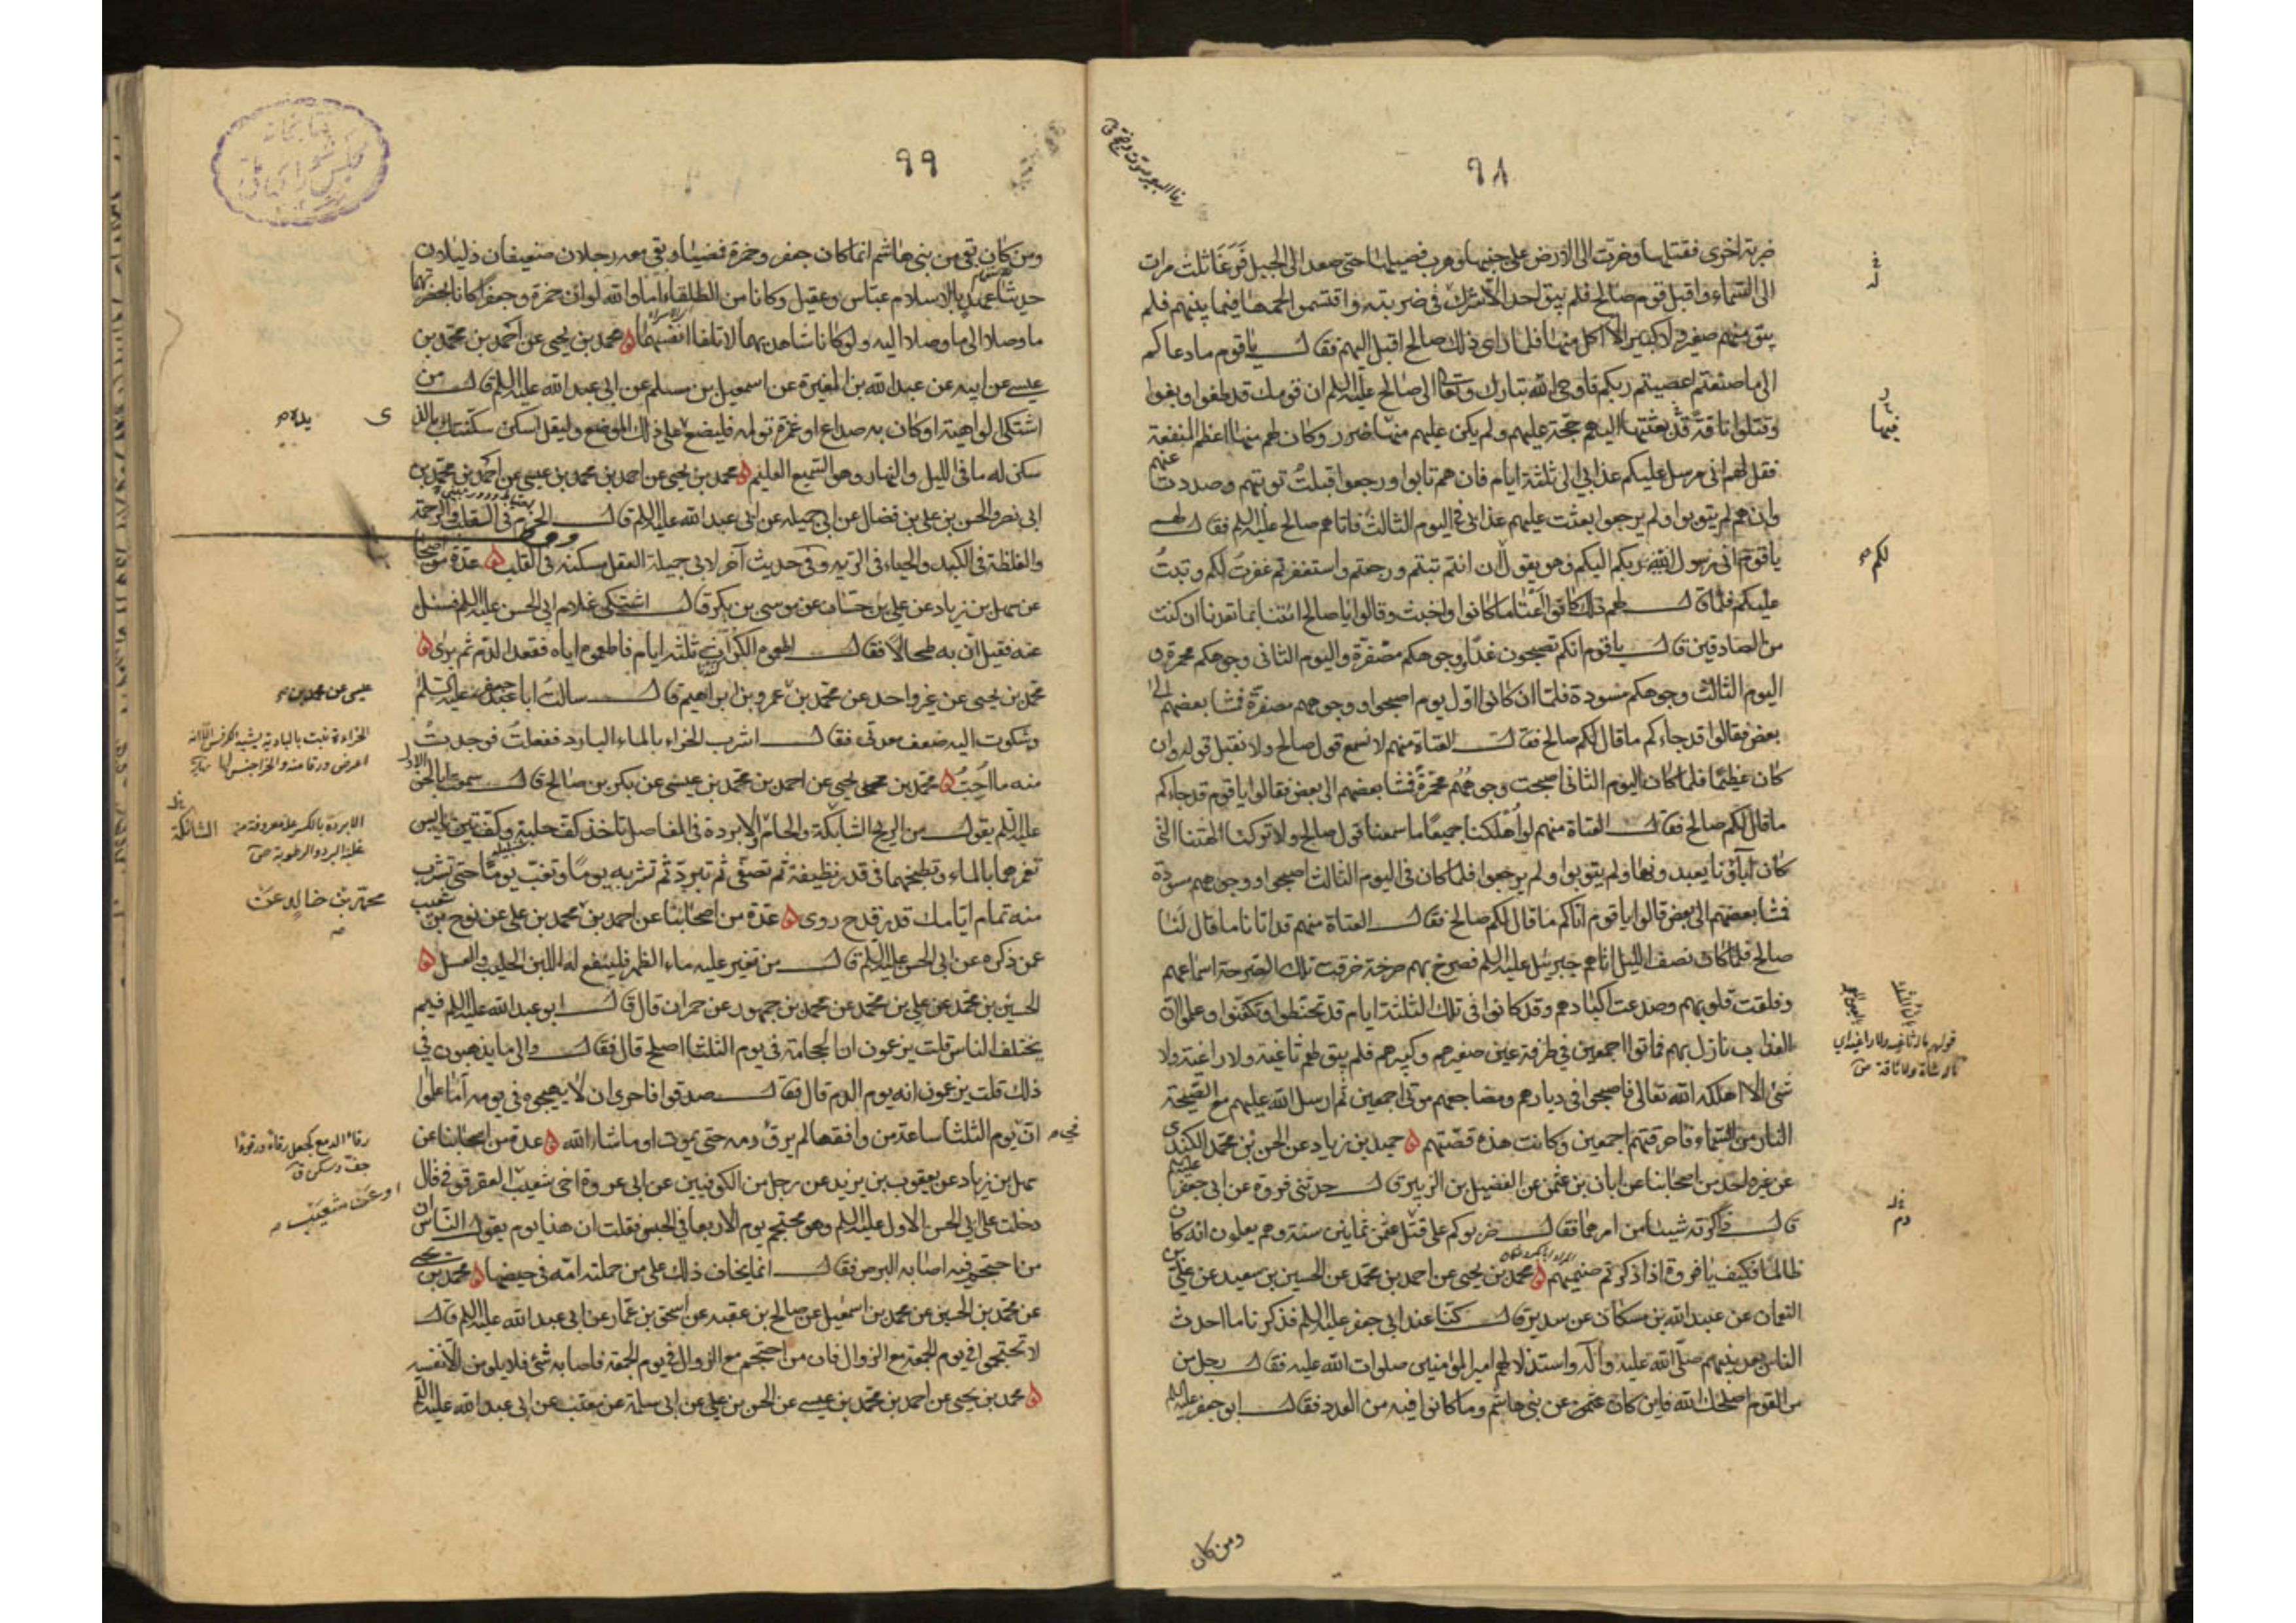 ٩٨
ضربة اخرى فقتلها وخرّت الى الارض على جنبها وهرب فصيلها حتى صعد الى الجبل فرغا ثلث مرات
الى السماء واقبل قوم صالح فلم يبق احد الا شرك في ضربته واقتسموا لحمها فيما بينهم فلم
يبق منهم صغير ولا كبير الا اكل منها فلما راى ذلك صالح اقبل اليهم فقال يا قوم ما دعاكم
الى ما صنعتم اعصيتم ربكم فاوحى الله تبارك وتعالى الى صالح عليه السلم ان قومك قد طغوا وبغوا
وقتلوا ناقة قد بعثتها اليهم حجة عليهم ولم يكن عليهم منها ضرر وكان لهم منها اعظم المنفعة
فقل لهم انى مرسل عليكم عذابي الى ثلثة ايام فان هم تابوا ورجعوا قبلت توبتهم وصددت عنهم
وان هم لم يتوبوا ولم يرجعوا بعثت عليهم عذابي في اليوم الثالث فاتاهم صالح عليه السلم فقال لهم
يا قوم انى رسول ربكم اليكم وهو يقول لكم ان انتم تبتم ورجعتم واستغفرتم غفرت لكم وتبت
عليكم فلما قال لهم ذلك كانوا اعتا ما كانوا واخبث وقالوا يا صالح ائتنا بما تعدنا ان كنت
من الصادقين قال يا قوم انكم تصبحون غدا ووجوهكم مصفرة واليوم الثانى وجوهكم محمرة و
اليوم الثالث وجوهكم مسودة فلما ان كان اول يوم اصبحوا ووجوههم مصفرة فمشا بعضهم الى
بعض فقالوا قد جاءكم ما قال لكم صالح فقال العتاة منهم لا نسمع قول صالح ولا نقبل قوله وان
كان عظيما فلما كان اليوم الثانى اصبحت وجوههم محمرة فمشا بعضهم الى بعض فقالوا يا قوم قد جاءكم
ما قال لكم صالح فقال العتاة منهم لو اهلكنا جميعا ما سمعنا قول صالح ولا تركنا الهتنا التى
كان آباؤنا يعبدونها ولم يتوبوا ولم يرجعوا فلما كان في اليوم الثالث اصبحوا ووجوههم مسودة
فمشا بعضهم الى بعض قالوا يا قوم اتاكم ما قال لكم صالح فقال العتاة منهم قد اتانا ما قال لنا
صالح فلما كان نصف الليل اتاهم جبرئيل عليه السلم فصرخ بهم صرخة خرقت تلك الصرخة اسماعهم
وفلقت قلوبهم وصدعت اكبادهم وقد كانوا في تلك الثلثة ايام قد تحنطوا وتكفنوا وعلموا ان
العذاب نازل بهم فماتوا اجمعين في طرفة عين صغيرهم وكبيرهم فلم يبق لهم ثاغية ولا راغية ولا
شئ الا اهلكه الله تعالى فاصبحوا في ديارهم ومضاجعهم موتى اجمعين ثم ارسل الله عليهم مع الصيحة
النار من السماء فاحرقتهم اجمعين وكانت هذه قصتهم حميد بن زياد عن الحسن بن محمد الكندى
عن غير واحد من اصحابنا عن ابان بن عثمن عن الفضيل بن الزبير قال حدثنى فروة عن ابي جعفر عليه السلم
قال ذاكرته شيئا من امرهما فقال ضربوكم على قتل عثمن ثمانين سنة وهم يعلمون انه كان
ظالما فكيف يا فروة اذا ذكرتم صنميهم محمد بن يحيى عن احمد بن محمد عن الحسين بن سعيد عن على بن
النعمان عن عبد الله بن مسكان عن سدير قال كنا عند ابي جعفر عليه السلم فذكرنا ما احدث
الناس بعد نبيهم صلى الله عليه وآله واستذلالهم امير المؤمنين صلوات الله عليه فقال رجل من
من القوم اصلحك الله فاين كان عز بني هاشم وما كانوا فيه من العدد فقال ابو جعفر عليه السلم
ومن كان
فيها
لكم
قوله ثاغية ولا راغية اى
شاة ولا ناقة ص
دم
٩٩
ومن كان بقى من بنى هاشم انما كان جعفر وحمزة فمضيا وبقى معه رجلان ضعيفان ذليلان
حديثا عهد بالاسلام عباس وعقيل وكانا من الطلقاء اما والله لو ان حمزة وجعفرا كانا بحضرتهما
ما وصلا الى ما وصلا اليه ولو كانا شاهديهما لاتلفا انفسهما محمد بن يحيى عن احمد بن محمد بن
عيسى عن ابيه عن عبد الله بن المغيرة عن اسمعيل بن مسلم عن ابي عبد الله عليه السلم قال من
اشتكى الواهنة او كان به صداع او غمرة بوله فليضع يده على ذلك الموضع وليقل اسكن سكنتك بالذى
سكن له ما في الليل والنهار وهو السميع العليم محمد بن يحيى عن احمد بن محمد بن عيسى عن احمد بن محمد بن
ابي نصر والحسن بن على بن فضال عن ابي جميله عن ابي عبد الله عليه السلم قال الحزم في القلب والرحمة
والغلظة في الكبد والحياء في الرية وفي حديث آخر لابي جميلة العقل مسكنه في القلب عدة من اصحابنا
عن سهل بن زياد عن على بن حسان عن موسى بن بكر قال اشتكى غلام ابي الحسن عليه السلم فسئل
عنه فقيل ان به طحالا فقال اطعموه الكراث ثلثة ايام فاطعموه اياه فقعد الدم ثم برئ
محمد بن يحيى عن غير واحد عن محمد بن عمرو بن ابراهيم قال سالت ابا جعفر عليه السلم
وشكوت اليه ضعف معدتى فقال اشرب الحزاء بالماء البارد ففعلت فوجدت
منه ما احب محمد بن يحيى عن احمد بن محمد بن عيسى عن بكر بن صالح قال سمعت ابا الحسن الاول
عليه السلم يقول من الريح الشابكة والحام والابردة في المفاصل تاخذ كف حلبة وكف تين يابس
تغمرهما بالماء وتطبخهما في قدر نظيفة ثم تصفى ثم تبرد ثم تشربه يوما وتغب يوما حتى تشرب
منه تمام ايامك قدر قدح روى عدة من اصحابنا عن احمد بن محمد بن على عن نوح بن شعيب
عمن ذكره عن ابي الحسن عليه السلم قال من تغير عليه ماء الظهر فلينفع له اللبن الحليب والعسل
الحسين بن محمد عن على بن محمد عن محمد بن جمهور عن حمران قال قال ابو عبد الله عليه السلم فيم
يختلف الناس قلت يزعمون ان الحجامة في يوم الثلثا اصلح قال فقال والى ما يذهبون في
ذلك قلت يزعمون انه يوم الدم قال فقال صدقوا فاحرى ان لا يهيجوه في يومه اما علموا
ان في يوم الثلثا ساعة من وافقها لم يرق دمه حتى يموت او ما شاء الله عدة من اصحابنا عن
سهل بن زياد عن يعقوب بن يزيد عن رجل من الكوفيين عن ابي عروة اخى شعيب العقرقوفى قال
دخلت على ابي الحسن الاول عليه السلم وهو محتجم يوم الاربعا في الحبس فقلت ان هذا يوم يقول الناس ان
من احتجم فيه اصابه البرص فقال انما يخاف ذلك على من حملته امه في حيضها محمد بن يحيى
عن محمد بن الحسين عن محمد بن اسمعيل عن صالح بن عقبه عن اسحق بن عمار عن ابي عبد الله عليه السلم قال
لا تحتجموا في يوم الجمعة مع الزوال فان من احتجم مع الزوال في يوم الجمعة فاصابه شئ فلا يلومن الا نفسه
محمد بن يحيى عن احمد بن محمد بن عيسى عن الحسن بن على عن ابي سلمة عن معتب عن ابي عبد الله عليه السلم
يده
عيسى عن محمد بن
الحزاءة نبت بالبادية يشبه الكرفس الا انه
اعرض ورقا منه والحزا جنس لها نهاية
الابردة بالكسر علة معروفة من
غلبة البرد والرطوبة ص
الشائكة
محمد بن خالد عن
رقا الدمع كجعل رقأ ورقوءا
جف وسكن ق
او عن شعيب